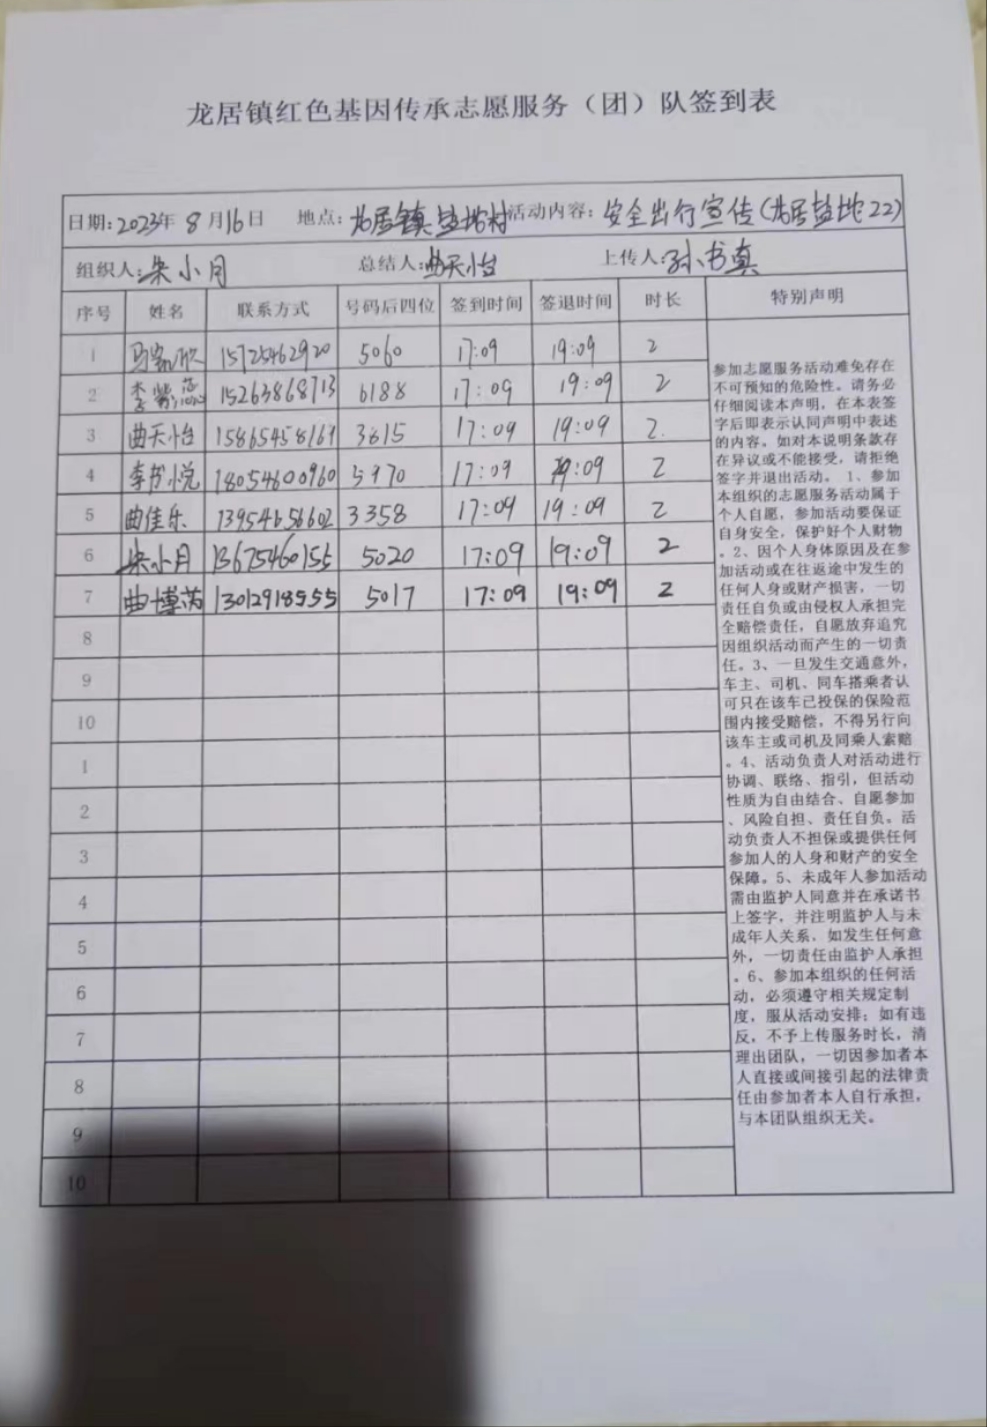 龙居镇红色基因传承志愿服务（团）队签到表
日期:2023年 8月16日 地点:龙居镇盐坨村 活动内容:安全出行宣传(龙居盐坨22)
组织人:朱小月 总结人:曲天怡 上传人:孙书真
序号 姓名 联系方式 号码后四位 签到时间 签退时间 时长 特别声明
1 15725462920 5060 17:09 19:09 2
2 15263868713 6188 17:09 19:09 2
3 曲天怡 15865458169 3815 17:09 19:09 2
4 李书悦 18054600960 5970 17:09 19:09 2
5 曲佳乐 13954656602 3358 17:09 19:09 2
6 朱小月 13675460155 5020 17:09 19:09 2
7 曲博芮 13012918555 5017 17:09 19:09 2
8
9
10
1
2
3
4
5
6
7
8
9
10
参加志愿服务活动难免存在
不可预知的危险性。请务必
仔细阅读本声明，在本表签
字后即表示认同声明中表述
的内容。如对本说明条款存
在异议或不能接受，请拒绝
签字并退出活动。 1、参加
本组织的志愿服务活动属于
个人自愿，参加活动要保证
自身安全，保护好个人财物
。2、因个人身体原因及在参
加活动或在往返途中发生的
任何人身或财产损害，一切
责任自负或由侵权人承担完
全赔偿责任，自愿放弃追究
因组织活动而产生的一切责
任。3、一旦发生交通意外，
车主、司机、同车搭乘者认
可只在该车已投保的保险范
围内接受赔偿，不得另行向
该车主或司机及同乘人索赔
。4、活动负责人对活动进行
协调、联络、指引，但活动
性质为自由结合、自愿参加
、风险自担、责任自负。活
动负责人不担保或提供任何
参加人的人身和财产的安全
保障。5、未成年人参加活动
需由监护人同意并在承诺书
上签字，并注明监护人与未
成年人关系，如发生任何意
外，一切责任由监护人承担
。6、参加本组织的任何活
动，必须遵守相关规定制
度，服从活动安排；如有违
反，不予上传服务时长，清
理出团队，一切因参加者本
人直接或间接引起的法律责
任由参加者本人自行承担，
与本团队组织无关。